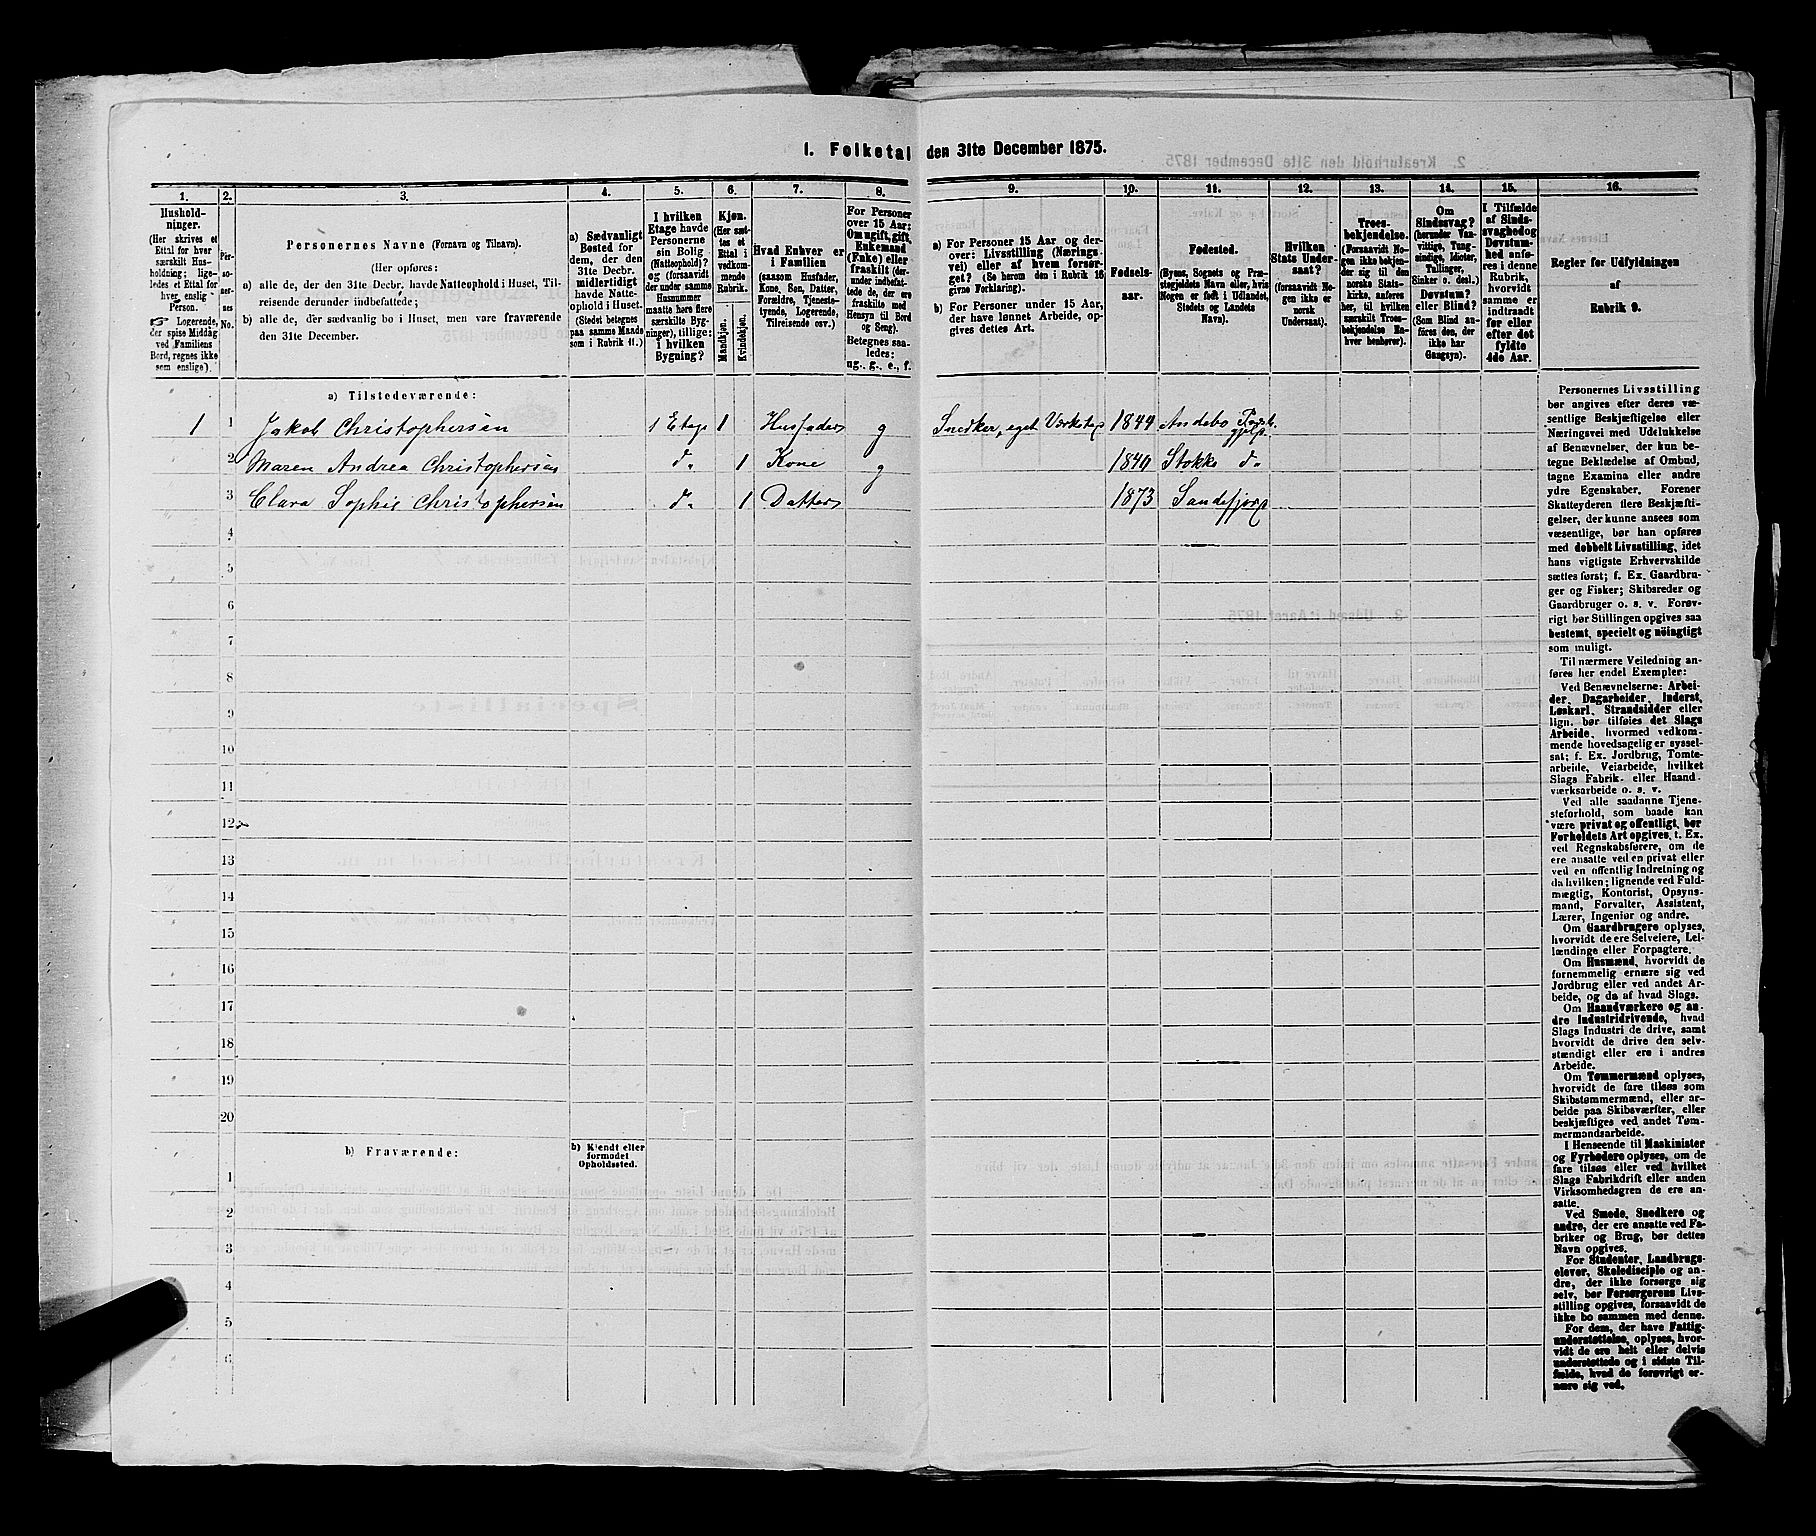 1. Folketal den 31te December 1875.
1. 2. 3. 4. 5. 6. 7. 8. 9. 10. 11. 12. 13. 14. 15. 16.
Hushold-
ninger.
(Her skrives et
Ettal for hver
særskilt Hus-
holdning; lige-
ledes et Ettal for
hver enslig
Person.
☞ Logerende,
der spise Middag
ved Familiens
Bord, regnes ikke
som enslige).
Per-
so-
ner-
nes
No.
Personernes Navne (Fornavn og Tilnavn).
(Her opføres:
a) alle de, der den 31te Decbr. havde Natteophold i Huset, Til-
reisende derunder indbefattede;
b) alle de, der sædvanlig bo i Huset, men vare fraværende
den 31te December.
a) Sædvanligt
Bosted for
dem, der den
31te Decbr.
midlertidigt
havde Natte-
ophold i Huset.
(Stedet betegnes
paa samme Maade
som i Rubrik 11.)
I hvilken
Etage havde
Personerne
sin Bolig
(Natteophold)?
og (forsaavidt
der under samme
Husnummer
maatte høre flere
særskilte Byg-
ninger), tillige:
I hvilken
Bygning?
Kjøn.
(Her sæt-
tes et
Ettal i
vedkom-
mende
Rubrik.
Mandkjøn.
Kvindekjøn.
Hvad Enhver er
i Familien
(saasom Husfader,
Kone, Søn, Datter,
Forældre, Tjeneste-
tyende, Logerende,
Tilreisende osv.)
For Personer
over 15 Aar:
Om ugift, gift,
Enkemand
(Enke) eller
fraskilt (der-
under indbefat-
tede de, der ere
fraskilte med
Hensyn til Bord
og Seng).
Betegnes saa-
ledes:
ug., g., e., f.
a) For Personer 15 Aar og der-
over: Livsstilling (Nærings-
vei) eller af hvem forsør-
get? (Se herom den i Rubrik 16
givne Forklaring).
b) For Personer under 15 Aar,
der have lønnet Arbeide, op-
gives dettes Art.
Fødsels-
aar.
Fødested.
(Byens, Sognets og Præ-
stegjeldets Navn eller, hvis
Nogen er født i Udlandet,
Stedets og Landets
Navn).
Hvilken
Stats Under-
saat?
(forsaavidt No-
gen ikke er
norsk
Undersaat).
Troes-
bekjendelse.
(Forsaavidt No-
gen ikke bekjen-
der sig til den
norske Stats-
kirke, anføres
her, til hvilken
særskilt Troes-
bekjendelse En-
hver henhører).
Om
Sindssvag?
(herunder Van-
vittige, Tung-
sindige, Idioter,
Tullinger,
Sinker o. desl.)
Døvstum?
eller Blind?
(Som Blind an-
føres den, der
ikke har
Gangsyn).
I Tilfælde
af Sinds-
svaghed og
Døvstum-
hed anfø-
res i denne
Rubrik,
hvorvidt
samme er
indtraadt
før eller
efter det
fyldte
4de Aar.
Regler for Udfyldningen
af
Rubrik 9.
a) Tilstedeværende:
1 1 Jakob Christophersen 1 Etage 1 Husfader g Snedker, eget Værksted 1844 Andebo Præst.gjeld
2 Maren Andrea Christophersen do 1 Kone g 1840 Stokke do
3 Clara Sophie Christophersen do 1 Datter 1873 Sandefjord
4
5
6
7
8
9
10
11
12
13
14
15
16
17
18
19
20
b) Fraværende:
b) Kjendt eller
formodet
Opholdssted.
1
2
3
4
5
6
Personernes Livsstilling
bør angives efter deres væ-
sentlige Beskjæftigelse eller
Næringsvei med Udelukkelse
af Benævnelser, der kun be-
tegne Beklædelse af Ombud,
tagne Examina eller andre
ydre Egenskaber. Forener
Skatteyderen flere Beskjæfti-
gelser, der kunne ansees som
væsentlige, bør han opføres
med dobbelt Livsstilling, idet
hans vigtigste Erhvervskilde
sættes først; f. Ex. Gaardbru-
ger og Fisker; Skibsreder og
Gaardbruger o. s. v. Forøv-
rigt bør Stillingen opgives saa
bestemt, specielt og nøiagtigt
som muligt.
Til nærmere Veiledning an-
føres her endel Exempler:
Ved Benævnelserne: Arbei-
der, Dagarbeider, Inderst,
Løskarl, Strandsidder eller
lign. bør tilføies det Slags
Arbeide, hvormed vedkom-
mende hovedsagelig er syssel-
sat; f. Ex. Jordbrug, Tomte-
arbeide, Veiarbeide, hvilket
Slags Fabrik- eller Haand-
værksarbeide o. s. v.
Ved alle saadanne Tjene-
steforhold, som baade kan
være privat og offentligt, bør
Forholdets Art opgives, t. Ex.
ved Regnskabsførere, om de
ere ansatte ved en privat eller
ved en offentlig Indretning og
da hvilken; lignende ved Fuld-
mægtig, Kontorist, Opsyns-
mand, Forvalter, Assistent,
Lærer, Ingeniør og andre.
Om Gaardbrugere oplyses,
hvorvidt de ere Selveiere, Lei-
lændinge eller Forpagtere.
Om Husmænd, hvorvidt de
fornemmelig ernære sig ved
Jordbrug eller ved andet Ar-
beide, og da af hvad Slags.
Om Haandværkere og an-
dre Industridrivende, hvad
Slags Industri de drive, samt
hvorvidt de drive den selv-
stændigt eller ere i andres
Arbeide.
Om Tømmermænd oplyses,
hvorvidt de fare tilsøs som
Skibstømmermænd, eller ar-
beide paa Skibsværfter, eller
beskjæftiges ved andet Tøm-
mermandsarbeide.
I Henseende til Maskinister
og Fyrbødere oplyses, om de
fare tilsøs eller ved hvilket
Slags Fabrikdrift eller anden
Virksomhedsgren de ere an-
satte.
Ved Smede, Snedkere og
andre, der ere ansatte ved Fa-
briker og Brug, bør dettes
Navn opgives.
For Studenter, Landbrugs-
elever, Skoledisciple og an-
dre, der ikke forsørge sig
selv, bør Forsørgerens Livs-
stilling opgives, forsaavidt de
ikke bo sammen med denne.
For dem, der have Fattig-
understøttelse, oplyses, hvor-
vidt de ere helt eller delvis
understøttede og i sidste Til-
fælde, hvad de forøvrigt er-
nære sig ved.